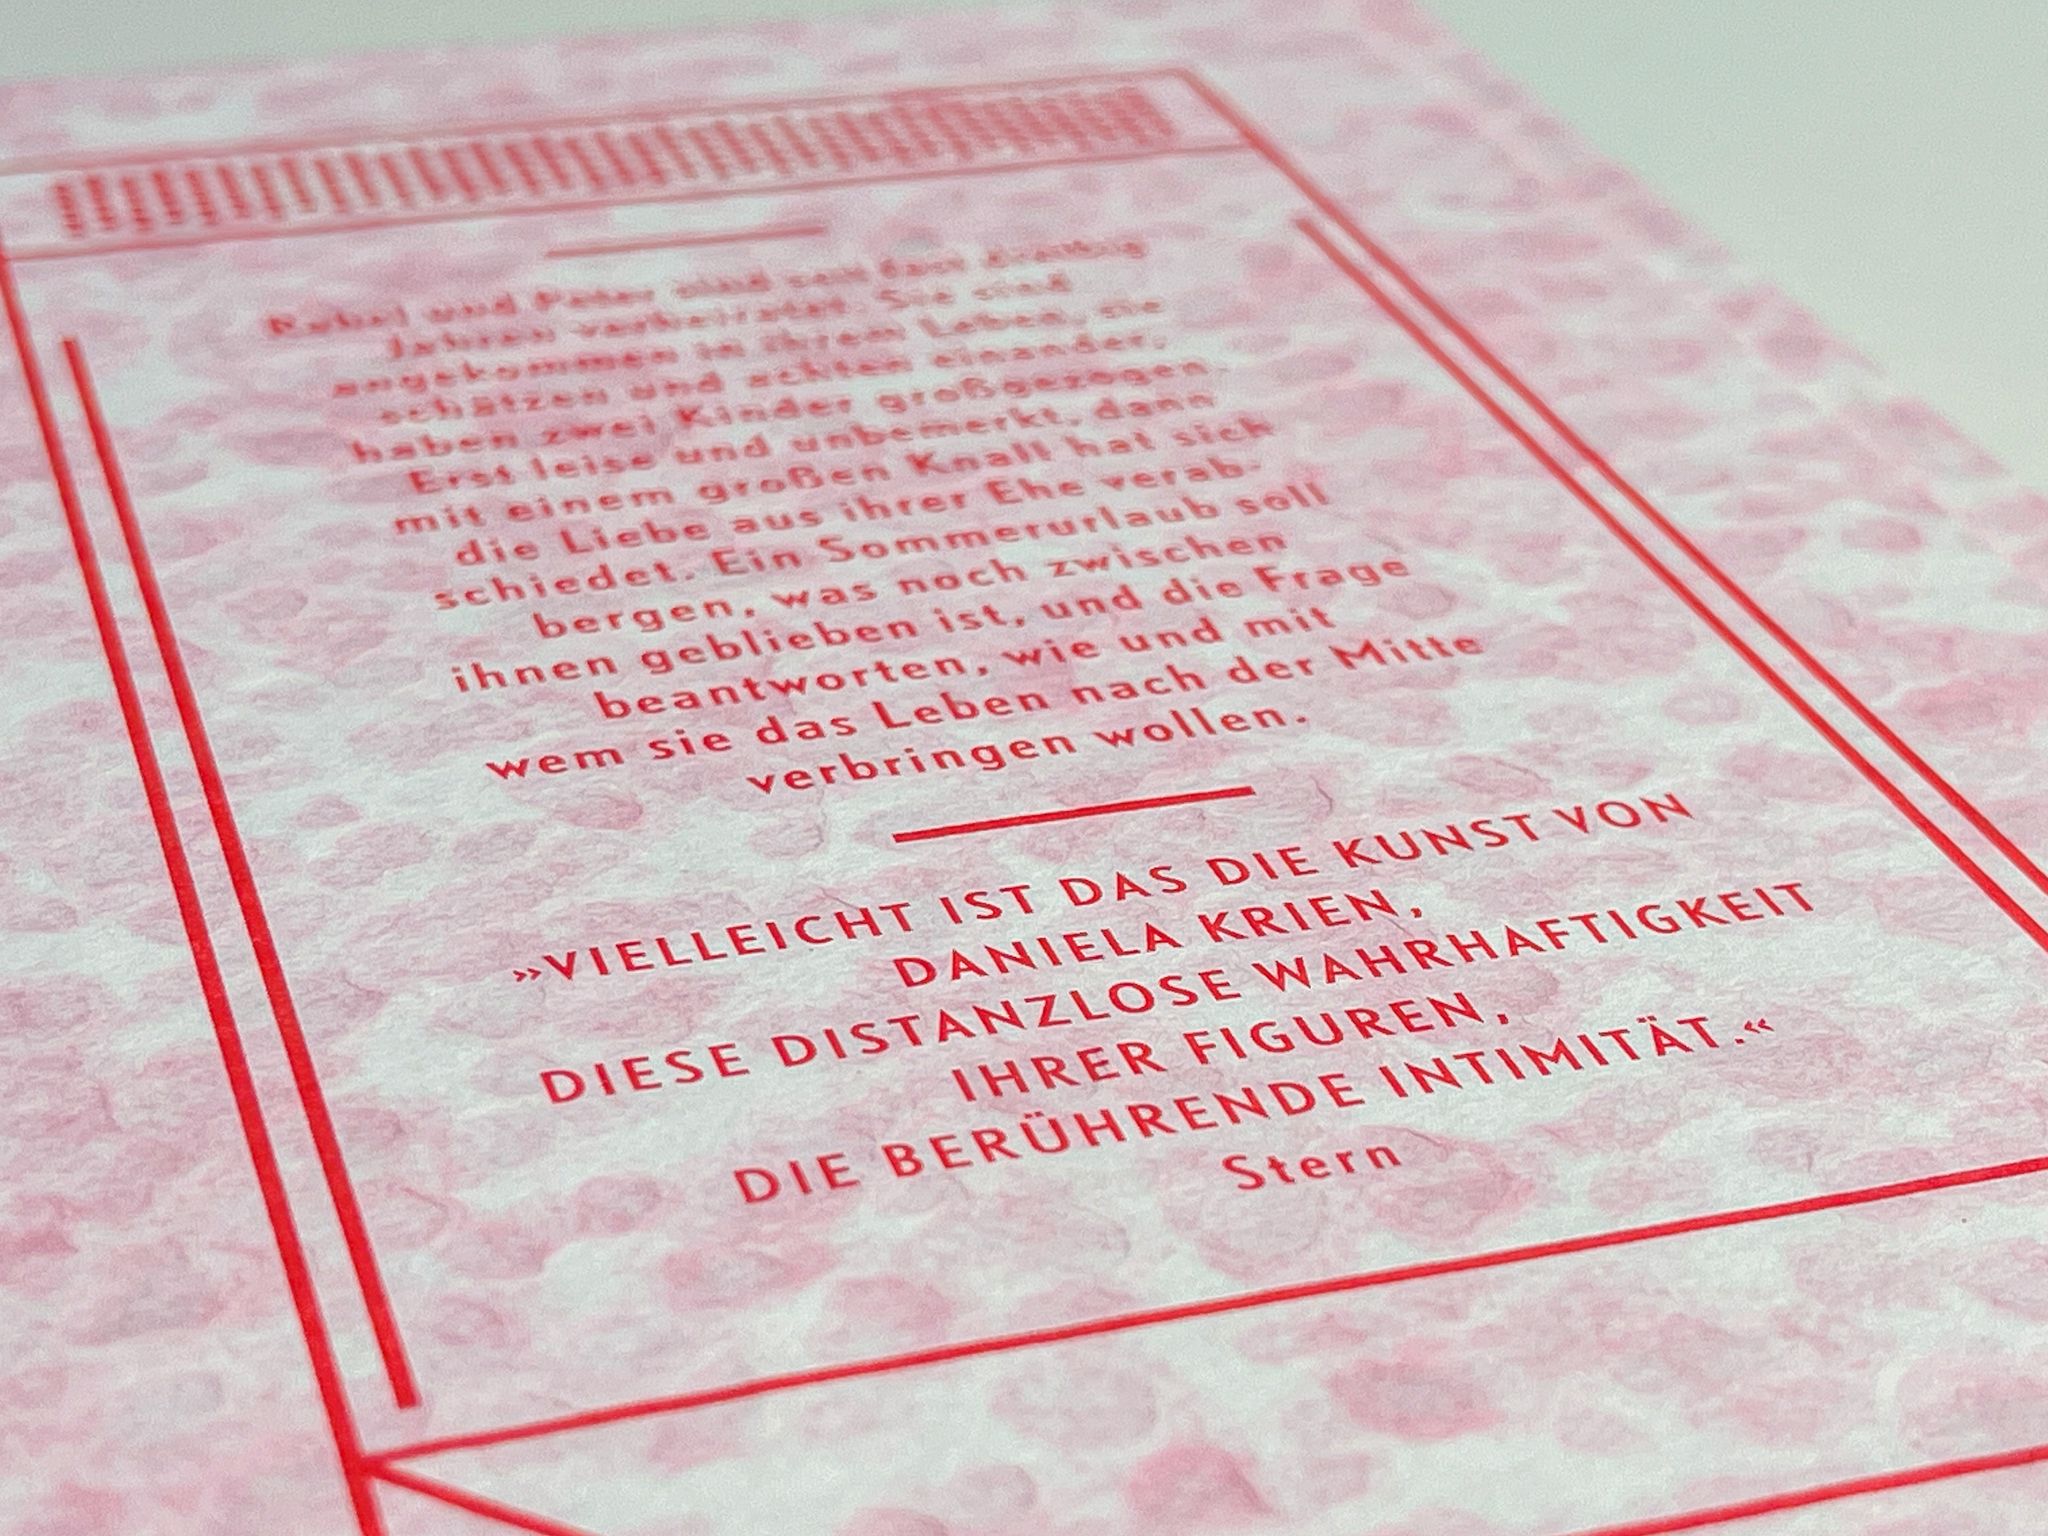 und Peter sind seit fast dreißig
Jahren verheiratet. Sie sind
angekommen in ihrem Leben, sie
schätzen und achten einander,
haben zwei Kinder großgezogen.
Erst leise und unbemerkt, dann
mit einem großen Knall hat sich
die Liebe aus ihrer Ehe verab-
schiedet. Ein Sommerurlaub soll
bergen, was noch zwischen
ihnen geblieben ist, und die Frage
beantworten, wie und mit
wem sie das Leben nach der Mitte
verbringen wollen.
»VIELLEICHT IST DAS DIE KUNST VON
DANIELA KRIEN,
DIESE DISTANZLOSE WAHRHAFTIGKEIT
IHRER FIGUREN,
DIE BERÜHRENDE INTIMITÄT.«
Stern